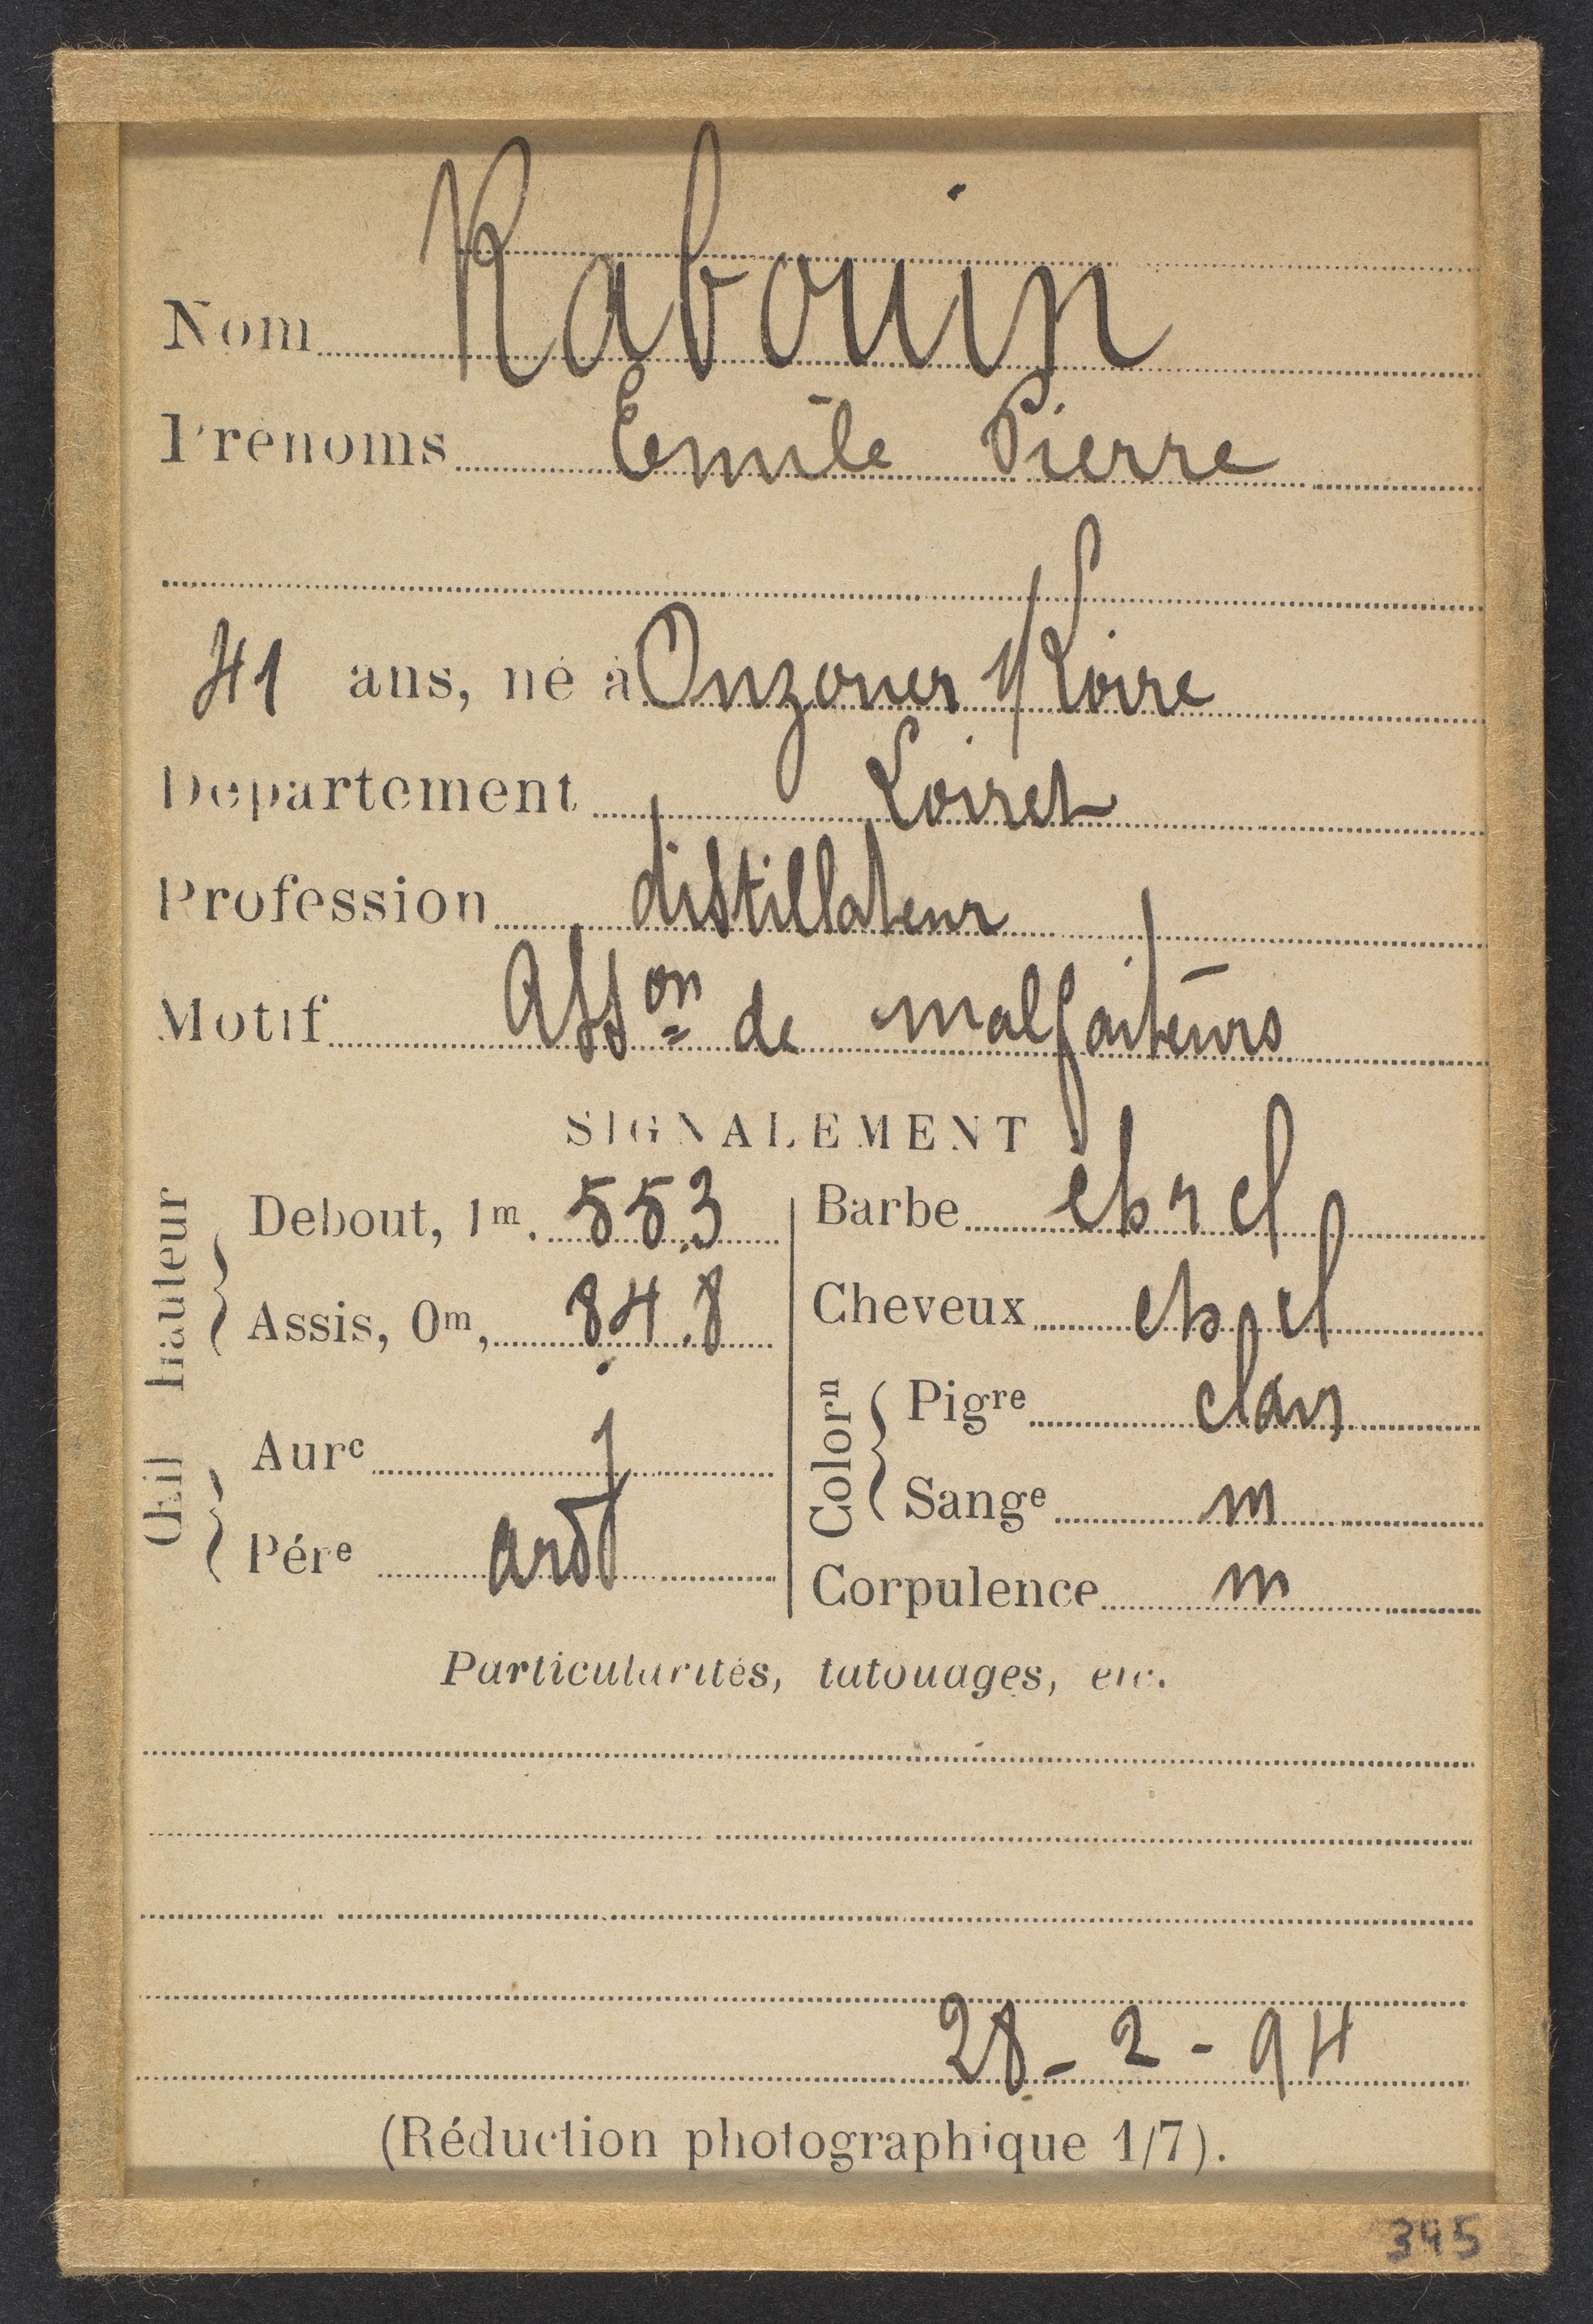 Nom Rabouin
Prénoms Emile Pierre
41 ans, né à Onzouer s/ Loire
Département Loiret
Profession distillateur
Motif Asson de malfaiteurs
SIGNALEMENT
Hauteur
Debout, 1m. 55.3
Assis, 0m, 84.8
Œil
Aurc j
Pére ard
Barbe ch r cl
Cheveux ch cl
Colorn
Pigre clair
Sange m
Corpulence m
Particularités, tatouages, etc.
28-2-94
(Réduction photographique 1/7).
395